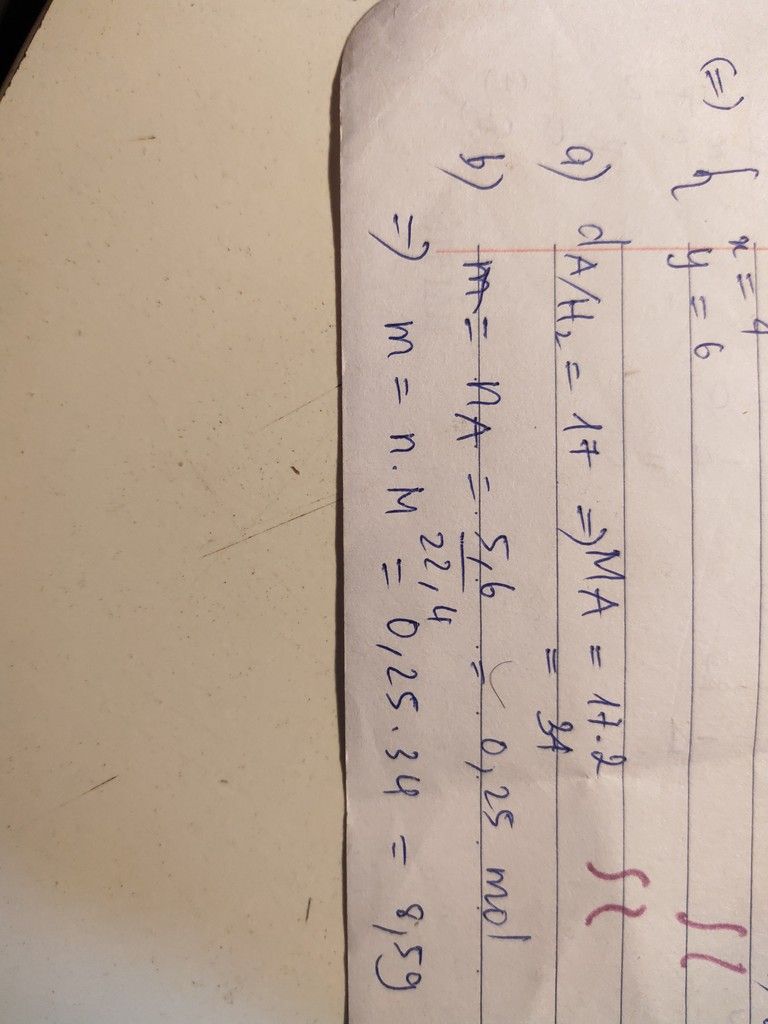 (=) { x = 4
y = 6
a) dA/H₂ = 17 => MA = 17.2
= 34
b) m = nA = 5,6 / 22,4 = 0,25 mol
=> m = n.M = 0,25.34 = 8,5g